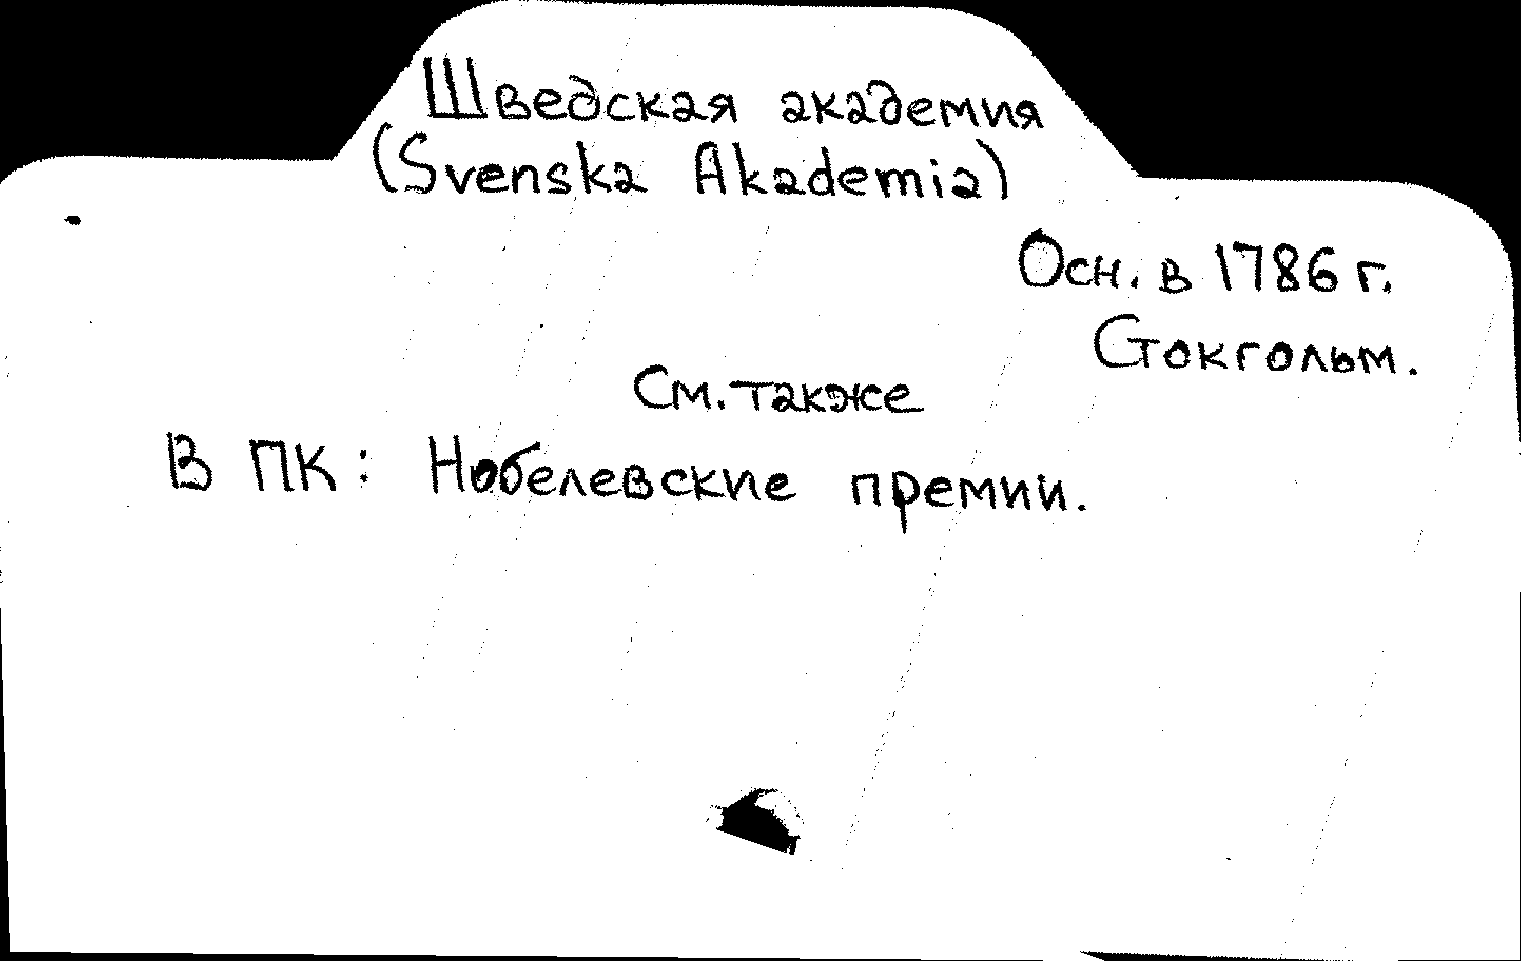 Шведская академия
(Svenska Akademia)
Осн. в 1786 г.
Стокгольм.
См. также
В ПК: Нобелевские премии.